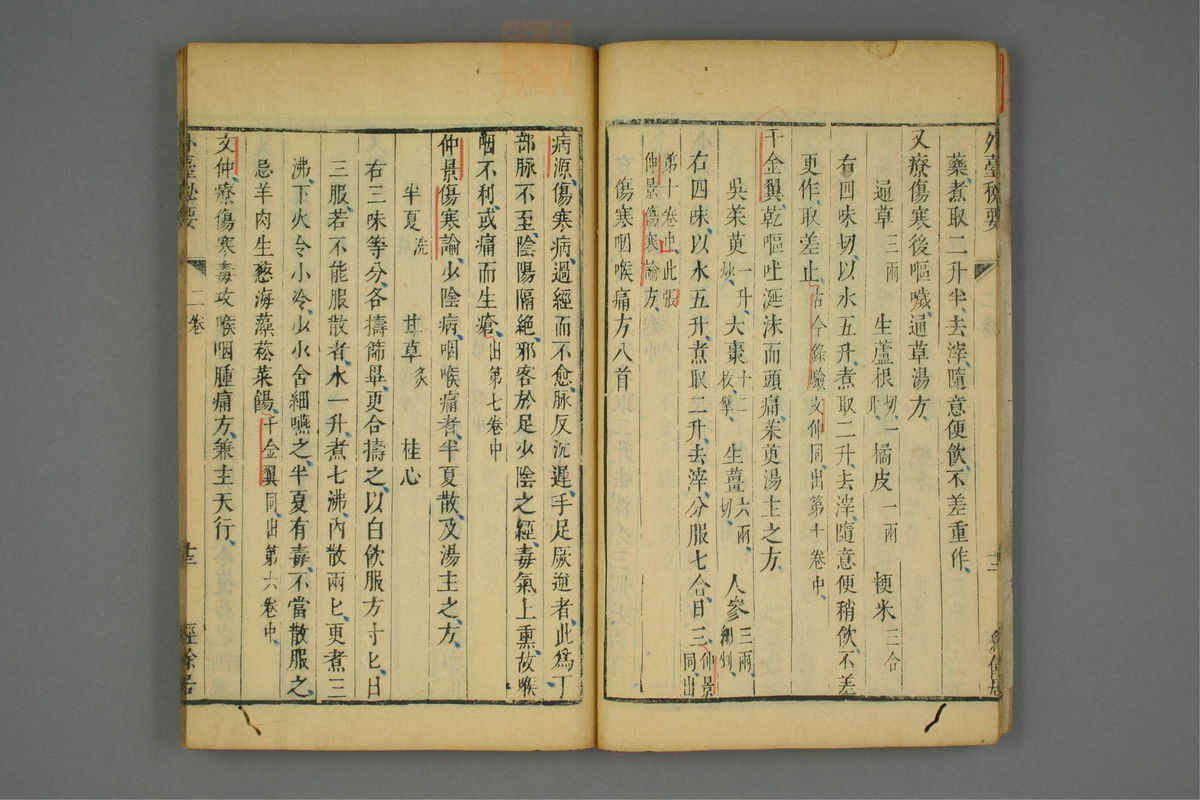 外臺秘要
藥煮取二升半去滓隨意便飲不差重作
又療傷寒後嘔噦通草湯方
通草三兩 生蘆根切一升 橘皮一兩 粳米三合
右四味切以水五升煮取二升去滓隨意便稍飲不差
更作取差止古今錄驗文仲同出第十卷中
千金翼乾嘔吐涎沫而頭痛茱萸湯主之方
吳茱萸一升炒 大棗十二枚擘 生薑切六兩 人參三兩細剉
右四味以水五升煮取二升去滓分服七合日三仲景同出
第十卷中此張仲景傷寒論方
傷寒咽喉痛方八首
病源傷寒病過經而不愈脉反沉遲手足厥逆者此爲下
部脉不至陰陽隔絶邪客於足少陰之經毒氣上熏故喉
咽不利或痛而生瘡出第七卷中
仲景傷寒論少陰病咽喉痛者半夏散及湯主之方
半夏洗 甘草炙 桂心
右三味等分各擣篩畢更合擣之以白飲服方寸匕日
三服若不能服散者水一升煮七沸內散兩匕更煮三
沸下火令小冷少少含細嚥之半夏有毒不當散服之
忌羊肉生葱海藻菘菜餳千金翼同出第六卷中
文仲療傷寒毒攻喉咽腫痛方兼主天行
外臺秘要 二卷 十三 經餘居